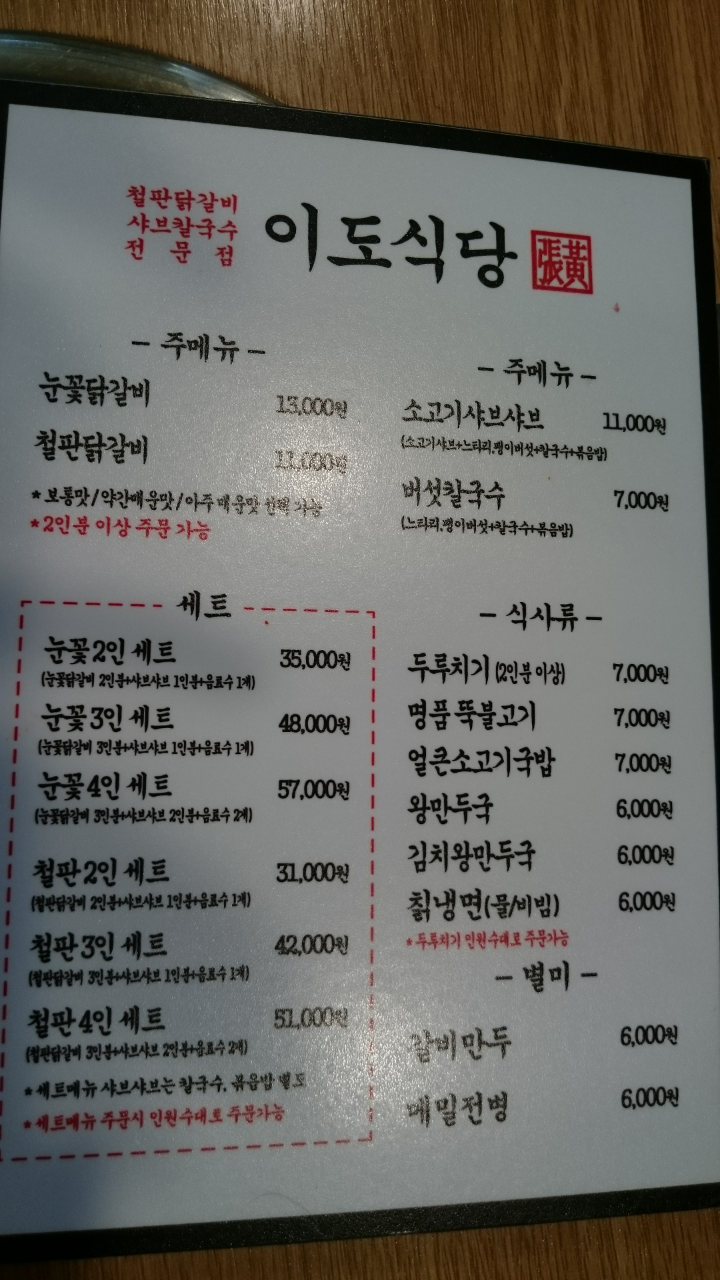 철판닭갈비
샤브칼국수
전문점
이도식당
張黃
- 주메뉴 -
눈꽃닭갈비 13,000원
철판닭갈비 11,000원
* 보통맛/약간매운맛/아주매운맛 선택 가능
* 2인분 이상 주문 가능
- 주메뉴 -
소고기샤브샤브 11,000원
(소고기샤브+느타리,팽이버섯+칼국수+볶음밥)
버섯칼국수 7,000원
(느타리,팽이버섯+칼국수+볶음밥)
세트
눈꽃2인 세트 35,000원
(눈꽃닭갈비 2인분+샤브샤브 1인분+음료수 1개)
눈꽃3인 세트 48,000원
(눈꽃닭갈비 3인분+샤브샤브 1인분+음료수 1개)
눈꽃4인 세트 57,000원
(눈꽃닭갈비 3인분+샤브샤브 2인분+음료수 2개)
철판2인 세트 31,000원
(철판닭갈비 2인분+샤브샤브 1인분+음료수 1개)
철판3인 세트 42,000원
(철판닭갈비 3인분+샤브샤브 1인분+음료수 1개)
철판4인 세트 51,000원
(철판닭갈비 3인분+샤브샤브 2인분+음료수 2개)
* 세트메뉴 샤브샤브는 칼국수, 볶음밥 별도
* 세트메뉴 주문시 인원수대로 주문가능
- 식사류 -
두루치기 (2인분 이상) 7,000원
명품 뚝불고기 7,000원
얼큰소고기국밥 7,000원
왕만두국 6,000원
김치왕만두국 6,000원
칡냉면(물/비빔) 6,000원
* 두루치기 인원수대로 주문가능
- 별미 -
갈비만두 6,000원
메밀전병 6,000원